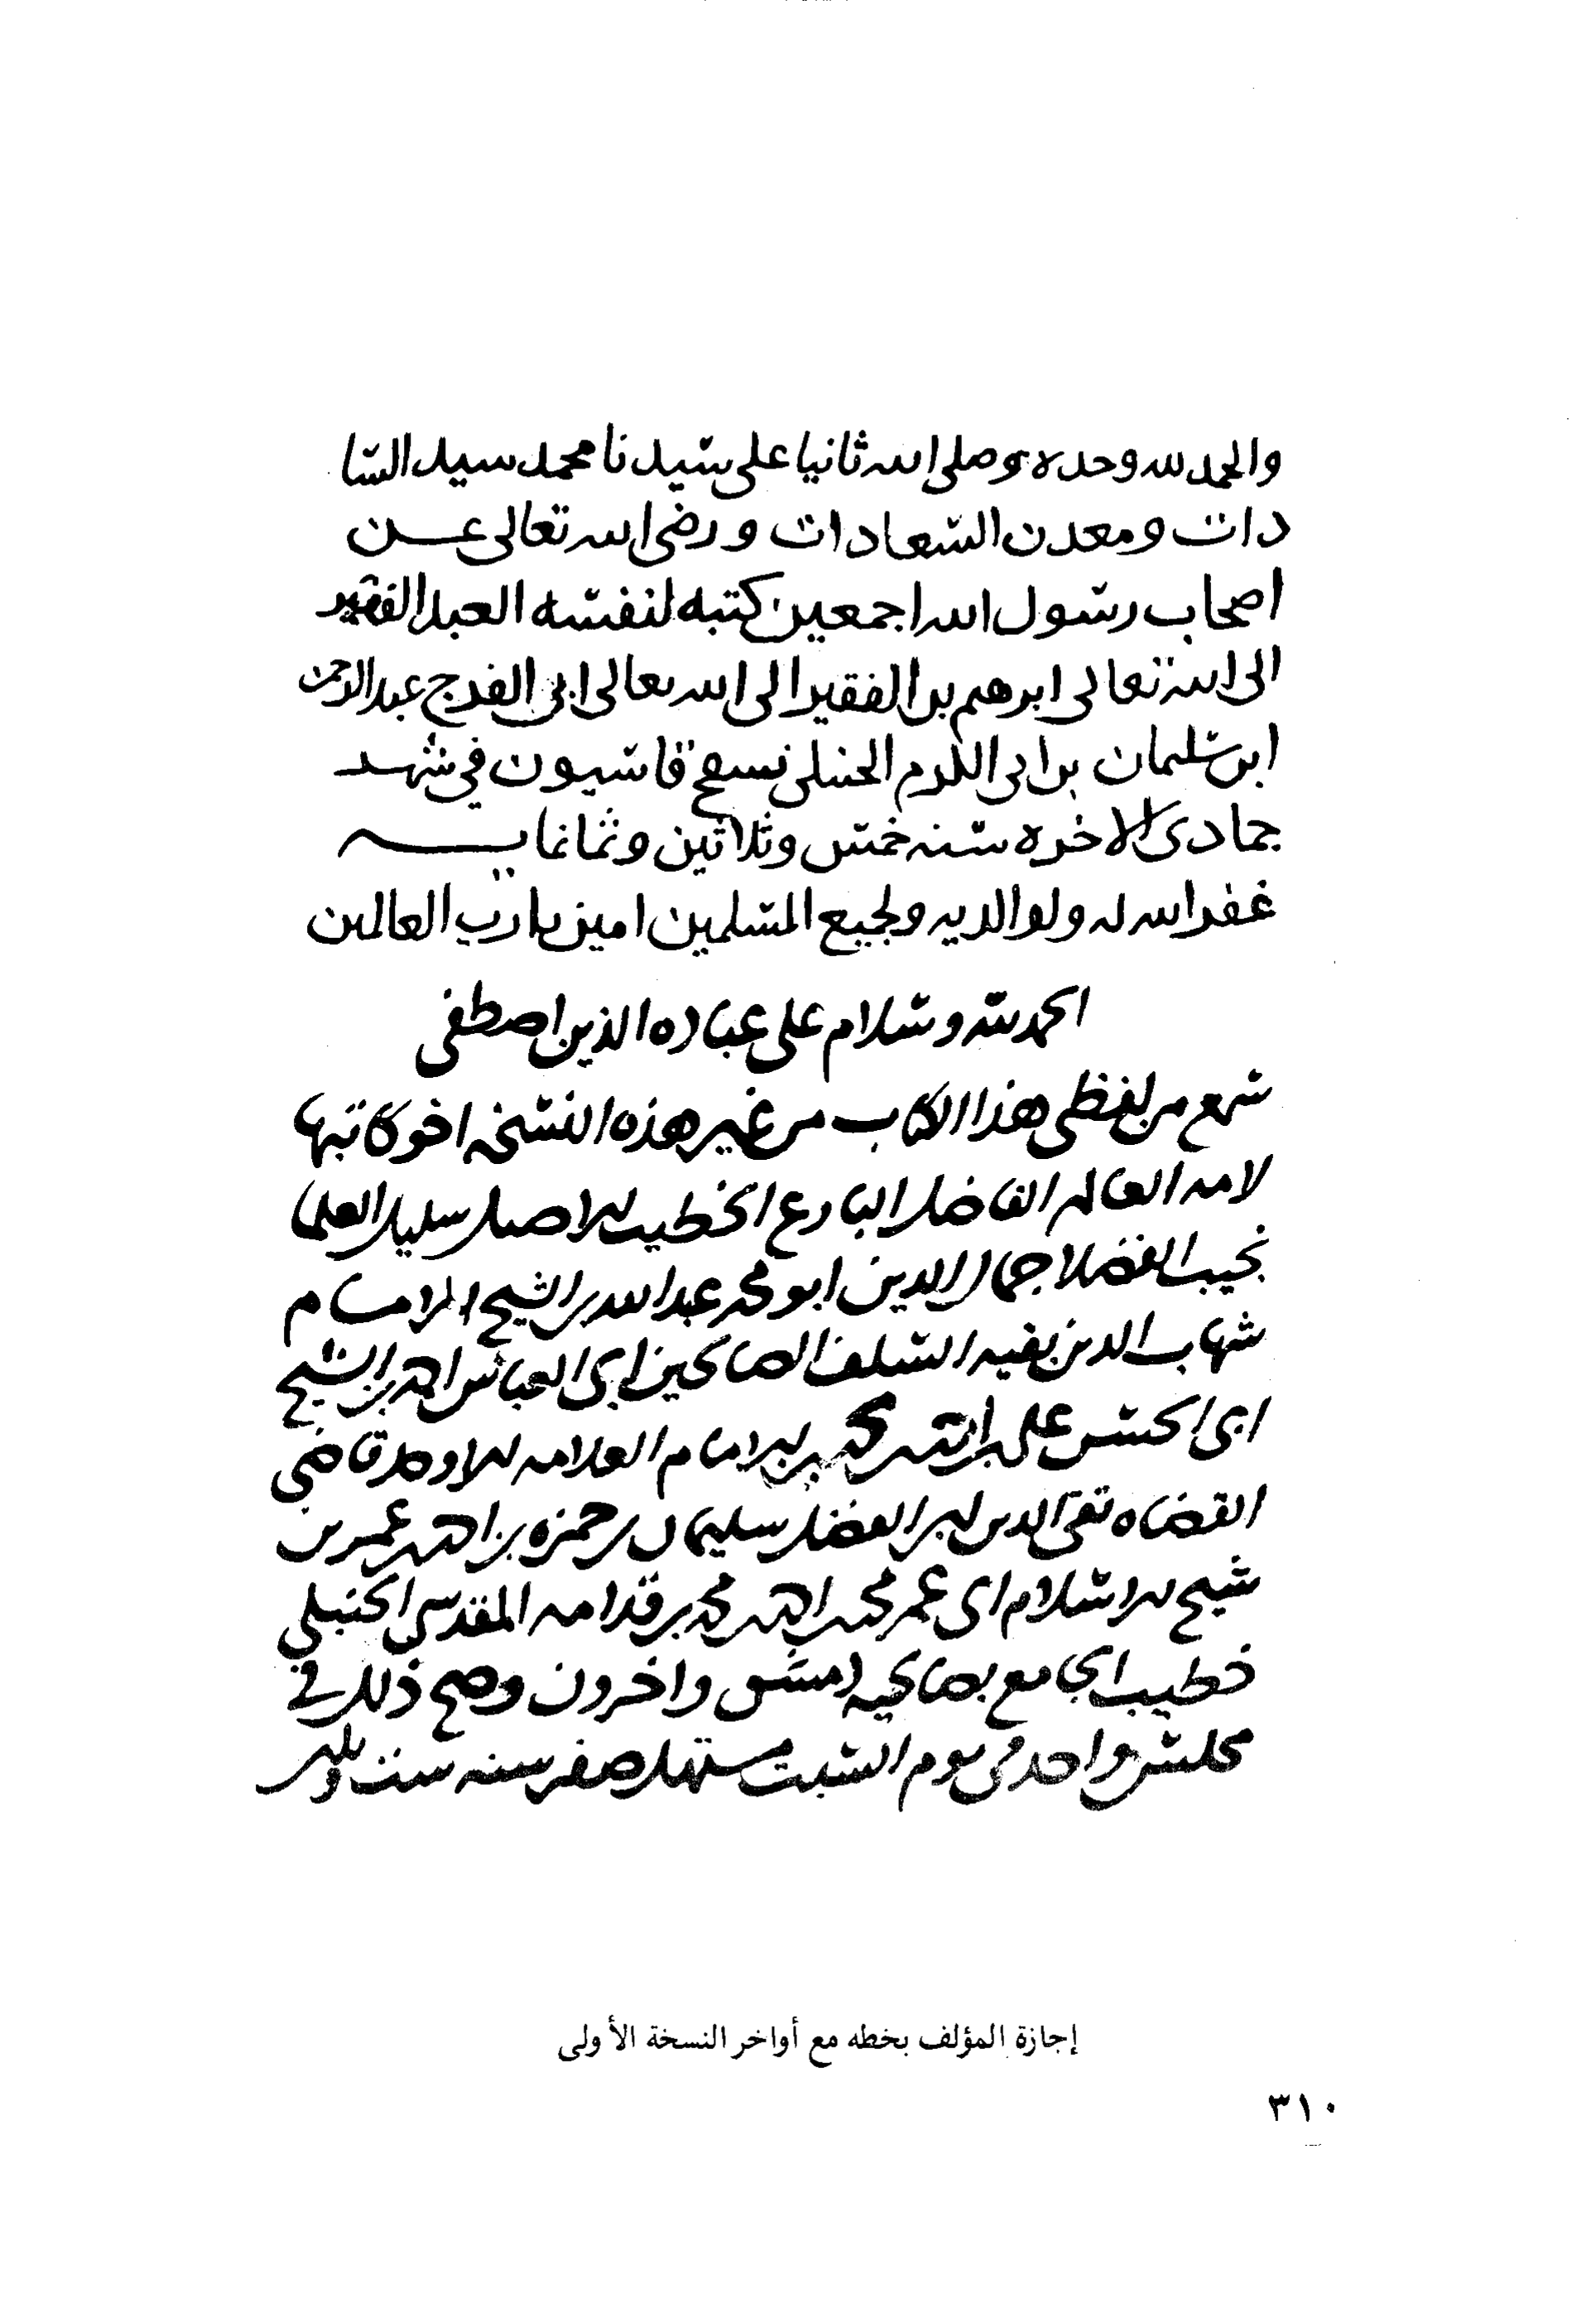 والحمد لله وحده وصلى الله ثانيا على سيدنا محمد سيد السا
دات ومعدن السعادات ورضى الله تعالى عن
اصحاب رسول الله اجمعين كتبه لنفسه العبد الفقير
الى الله تعالى ابرهيم بن الفقير الى الله تعالى ابى الفرج عبد الرحمن
ابن سليمان بن ابى الكرم الحنبلى بسفح قاسيون في شهر
جمادى الاخره سنه خمس وثلاثين وثمانمايه
غفر الله له ولوالديه ولجميع المسلمين امين يا رب العالمين
الحمد لله وسلام على عباده الذين اصطفى
سمع من لفظى هذا الكتاب من غير هذه النسخه اخو كاتبها
لامه العالم الفاضل البارع الخطيب الاصيل سليل العلما
نجيب الفضلا جمال الدين ابو محمد عبد الله بن الشيخ الامام
شهاب الدين بقيه السلف الصالحين ابى العباس احمد بن الشيخ
ابى الحسن على بن احمد بن محمد بن الامام العلامه الاوحد قاضى
القضاه تقى الدين ابى الفضل سليمان بن حمزه بن احمد بن عمر بن
شيخ الاسلام ابى عمر محمد بن احمد بن محمد بن قدامه المقدسى الحنبلى
خطيب الجامع بصالحيه دمشق واخرون وصح ذلك في
مجلس واحد في يوم السبت مستهل صفر سنه ست وثلاثين
إجازة المؤلف بخطه مع أواخر النسخة الأولى
٣١٠